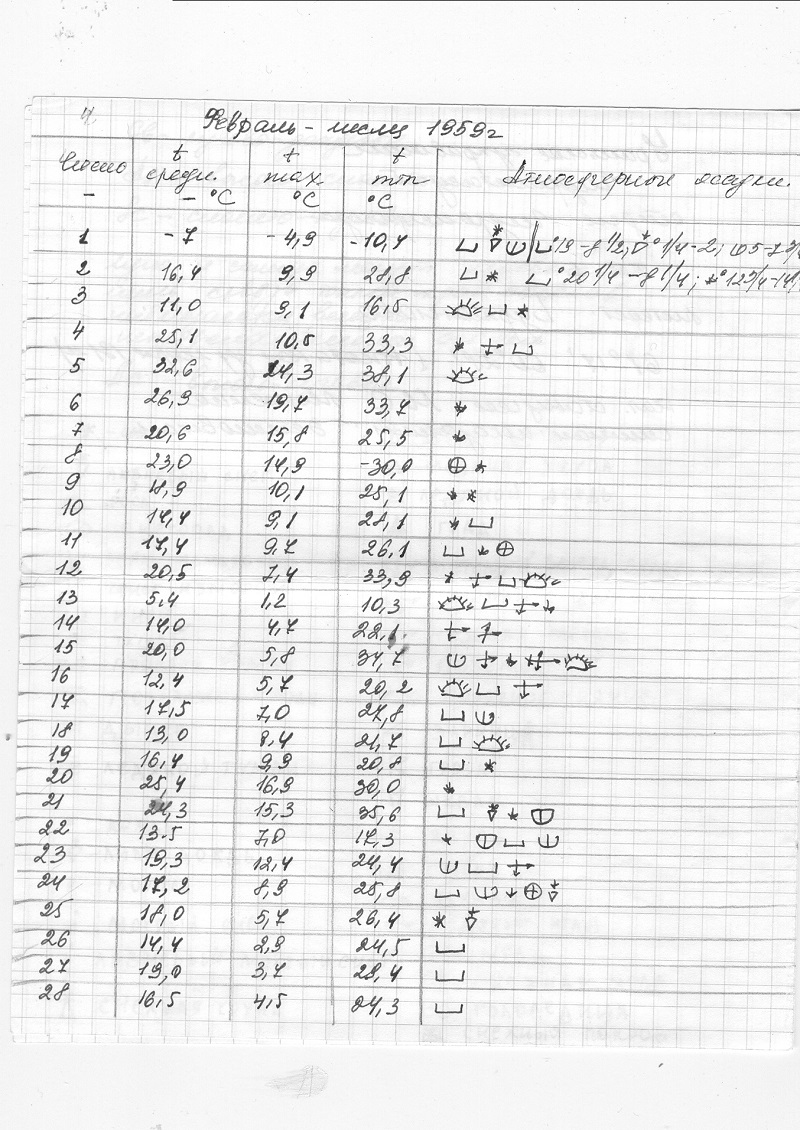 4
Февраль - месяц 1959г
Число t средн. t max t min Атмосферные осадки.
— — °C °C °C
1 -7 -4,9 -10,4
2 16,4 9,9 28,8
3 11,0 9,1 16,5
4 25,1 10,5 33,3
5 32,6 24,3 38,1
6 26,9 19,7 33,7
7 20,6 15,8 25,5
8 23,0 14,9 -30,0
9 18,9 10,1 25,1
10 14,4 9,1 28,1
11 17,4 9,7 26,1
12 20,5 7,4 33,9
13 5,4 1,2 10,3
14 14,0 4,7 22,1
15 20,0 5,8 34,7
16 12,4 5,7 20,2
17 17,5 7,0 27,8
18 13,0 8,4 21,7
19 16,4 9,9 20,8
20 25,4 16,9 30,0
21 24,3 15,3 35,6
22 13.5 7,0 17,3
23 19,3 12,4 24,4
24 17,2 8,9 25,8
25 18,0 5,7 26,4
26 14,4 2,9 24,5
27 19,0 3,7 29,4
28 16,5 4,5 24,3